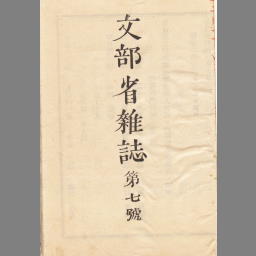 文部省雜誌第七號